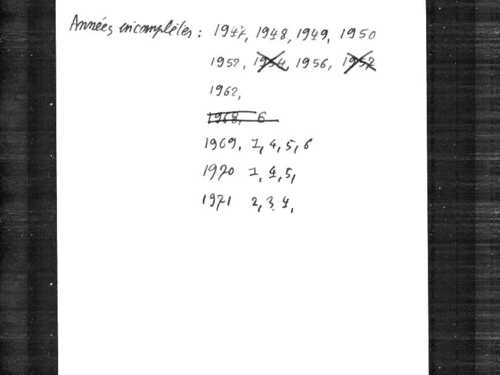 Années incomplètes : 1947, 1948, 1949, 1950
1952, 1954, 1956, 1957
1962,
1968, 6
1969, 1, 4, 5, 6
1970 1, 4, 5,
1971 2, 3, 4,